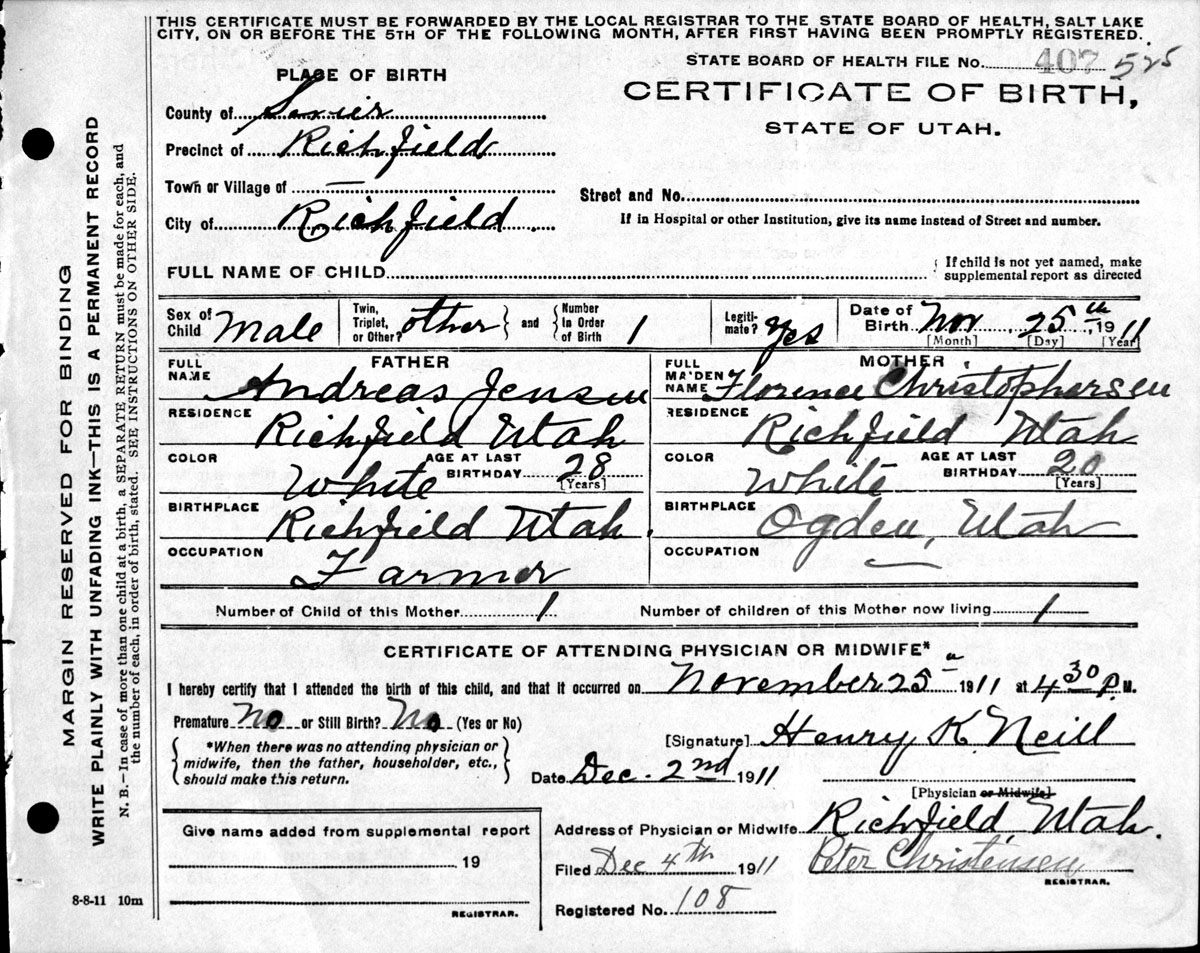 THIS CERTIFICATE MUST BE FORWARDED BY THE LOCAL REGISTRAR TO THE STATE BOARD OF HEALTH, SALT LAKE
CITY, ON OR BEFORE THE 5TH OF THE FOLLOWING MONTH, AFTER FIRST HAVING BEEN PROMPTLY REGISTERED.
STATE BOARD OF HEALTH FILE No. 407 525
PLACE OF BIRTH
CERTIFICATE OF BIRTH,
STATE OF UTAH.
County of Sevier
Precinct of Richfield
Town or Village of —
Street and No.
City of Richfield.
If in Hospital or other Institution, give its name instead of Street and number.
FULL NAME OF CHILD { If child is not yet named, make
supplemental report as directed
Sex of Child Male
Twin, Triplet, or Other? other } and { Number In Order of Birth 1
Legiti-mate? Yes
Date of Birth Nov 25th, 1911
[Month] [Day] [Year]
FATHER
FULL NAME Andreas Jensen
RESIDENCE Richfield Utah
COLOR White
AGE AT LAST BIRTHDAY 28
[Years]
BIRTHPLACE Richfield Utah.
OCCUPATION Farmer
MOTHER
FULL MAIDEN NAME Florence Christophersen
RESIDENCE Richfield Utah
COLOR White
AGE AT LAST BIRTHDAY 20
[Years]
BIRTHPLACE Ogden, Utah
OCCUPATION —
Number of Child of this Mother 1 Number of children of this Mother now living 1
CERTIFICATE OF ATTENDING PHYSICIAN OR MIDWIFE*
I hereby certify that I attended the birth of this child, and that it occurred on November 25 1911 at 4 30 P. M.
Premature No or Still Birth? No (Yes or No)
{ *When there was no attending physician or
midwife, then the father, householder, etc.,
should make this return. }
[Signature] Henry K. Neill
Date Dec. 2nd 1911
[Physician or Midwife]
Address of Physician or Midwife Richfield, Utah.
Give name added from supplemental report
19
REGISTRAR.
Filed Dec 4th 1911 Peter Christensen
REGISTRAR.
Registered No. 108
8-8-11 10m
MARGIN RESERVED FOR BINDING
WRITE PLAINLY WITH UNFADING INK—THIS IS A PERMANENT RECORD
N. B.—In case of more than one child at a birth, a SEPARATE RETURN must be made for each, and
the number of each, in order of birth, stated. SEE INSTRUCTIONS ON OTHER SIDE.